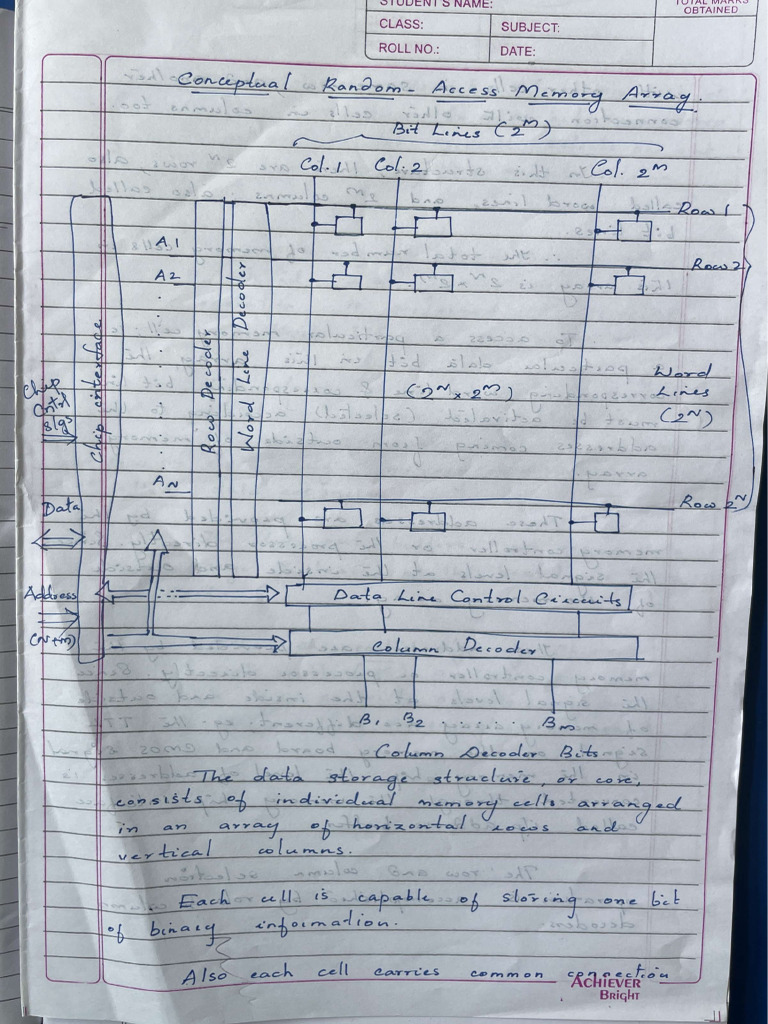 STUDENT'S NAME:
TOTAL MARKS
OBTAINED
CLASS:
SUBJECT:
ROLL NO.:
DATE:
Conceptual Random-Access Memory Array.
Bit Lines (2^M)
Col.1 Col.2 Col. 2^M
Row 1
A1
Row 2
A2
Chip interface
Row Decoder
Word Line Decoder
Word
Lines
(2^N)
(2^N x 2^M)
Chip
sig
AN
Row 2^N
Data
Address
(N+M)
Data Line Control Circuits
Column Decoder
B1 B2 Bm
Column Decoder Bits
The data storage structure, or core,
consists of individual memory cells arranged
in an array of horizontal rows and
vertical columns.
Each cell is capable of storing one bit
of binary information.
Also each cell carries common connection
ACHIEVER
BRIGHT